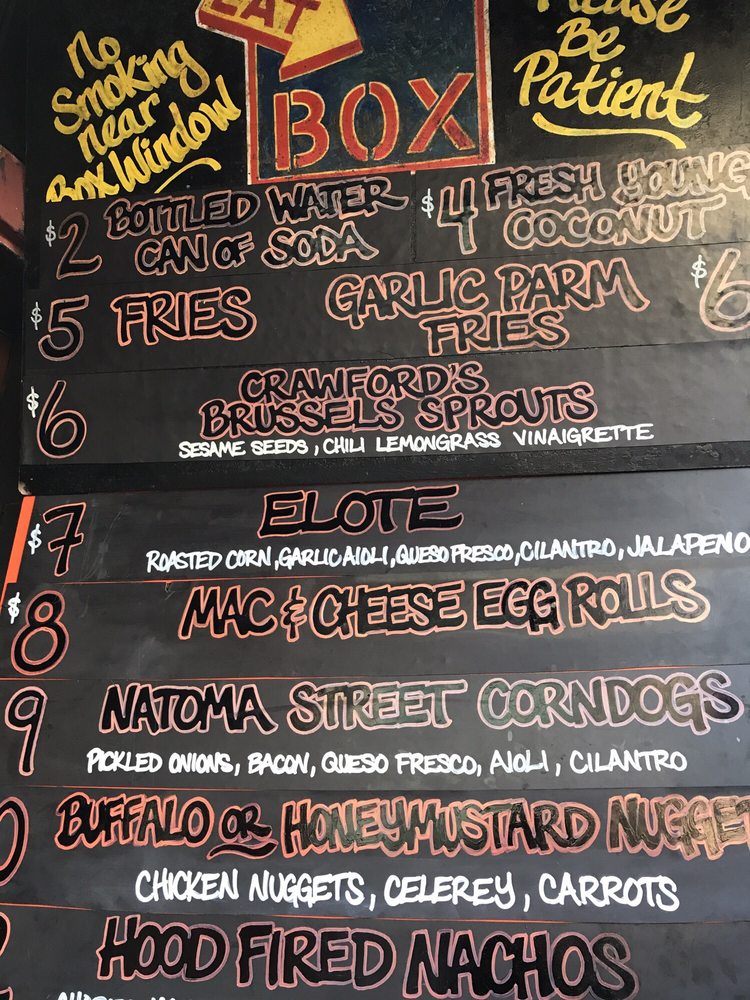 EAT
BOX
No
Smoking
near
Box Window
Please
Be
Patient
$2 BOTTLED WATER
CAN OF SODA
$4 FRESH YOUNG
COCONUT
$5 FRIES
GARLIC PARM
FRIES
$6
$6 CRAWFORD'S
BRUSSELS SPROUTS
SESAME SEEDS, CHILI LEMONGRASS VINAIGRETTE
$7 ELOTE
ROASTED CORN, GARLIC AIOLI, QUESO FRESCO, CILANTRO, JALAPENO
$8 MAC & CHEESE EGG ROLLS
9 NATOMA STREET CORNDOGS
PICKLED ONIONS, BACON, QUESO FRESCO, AIOLI, CILANTRO
0 BUFFALO OR HONEYMUSTARD NUGGE
CHICKEN NUGGETS, CELEREY, CARROTS
HOOD FIRED NACHOS